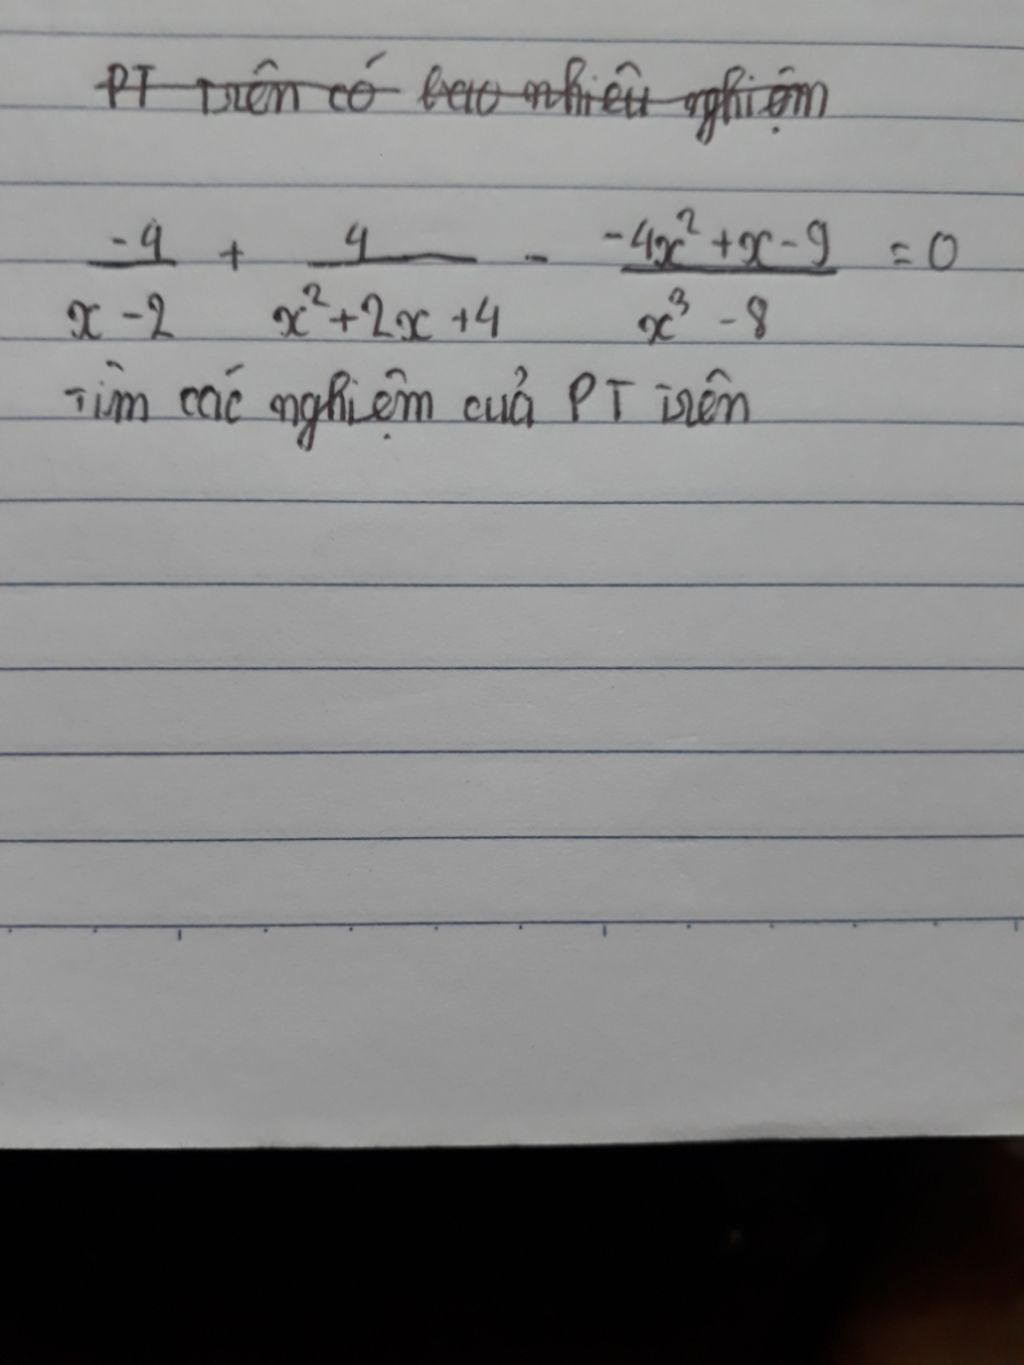 PT trên có bao nhiêu nghiệm
-4/(x-2) + 4/(x²+2x+4) - (-4x²+x-9)/(x³-8) = 0
Tìm các nghiệm của PT trên